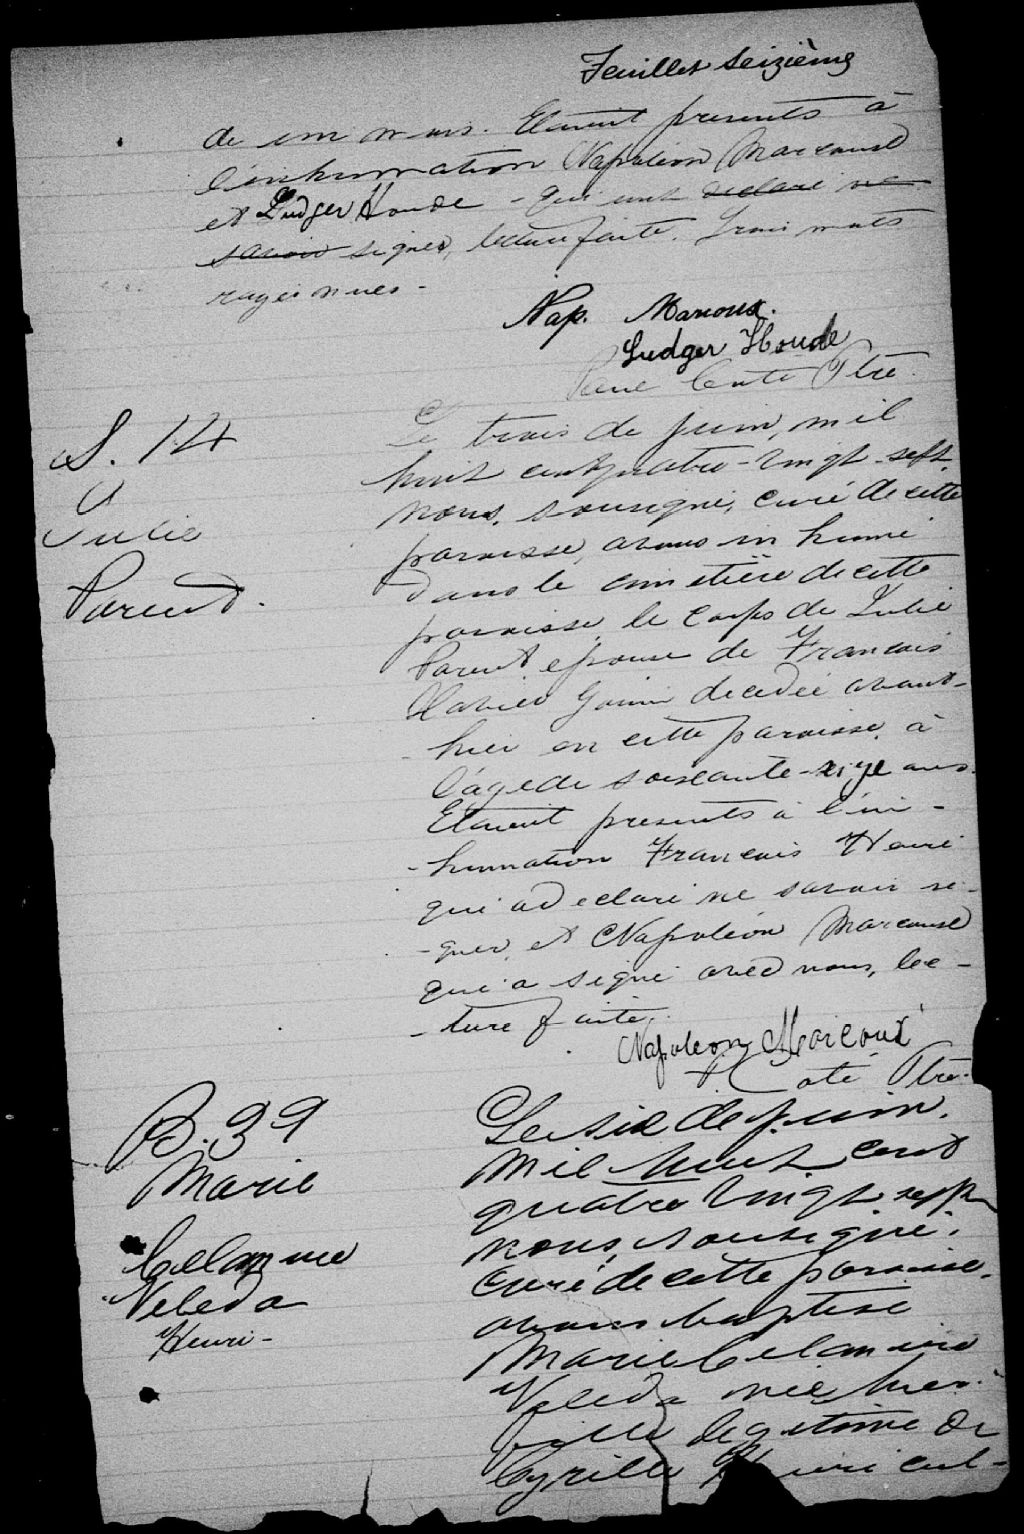 Feuillet seizième
de un mois. Etaient présents à
l'inhumation Napoléon Marcoux
et Ludger Houde - qui ont declaré ne
savoir signer, lecture faite. Trois mots
rayés nuls -
Nap. Marcoux.
Ludger Houde
Côté Ptre.
S. 14
Julie
Parent.
Le trois de juin, mil
huit cent quatre-vingt-sept
nous, soussigné, curé de cette
paroisse, avons inhumé
dans le cimetière de cette
paroisse le corps de Julie
Parent epouse de François
Xavier decedée avant-
hier en cette paroisse, à
l'âge de soixante-seize ans.
Etaient présents à l'in-
-humation François Henri
qui a declaré ne savoir si-
-gner, et Napoléon Marcoux
qui a signé avec nous, lec-
-ture faite.
Napoleon Marcoux
Côté Ptre.
B. 39
Marie
Celanire
Veleda
Henri -
Le six de juin,
mil huit cent
quatre vingt sept
nous, soussigné,
curé de cette paroisse,
avons baptisé
Marie Celanire
Veleda née hier
fille légitime de
Cyrille Henri cul-